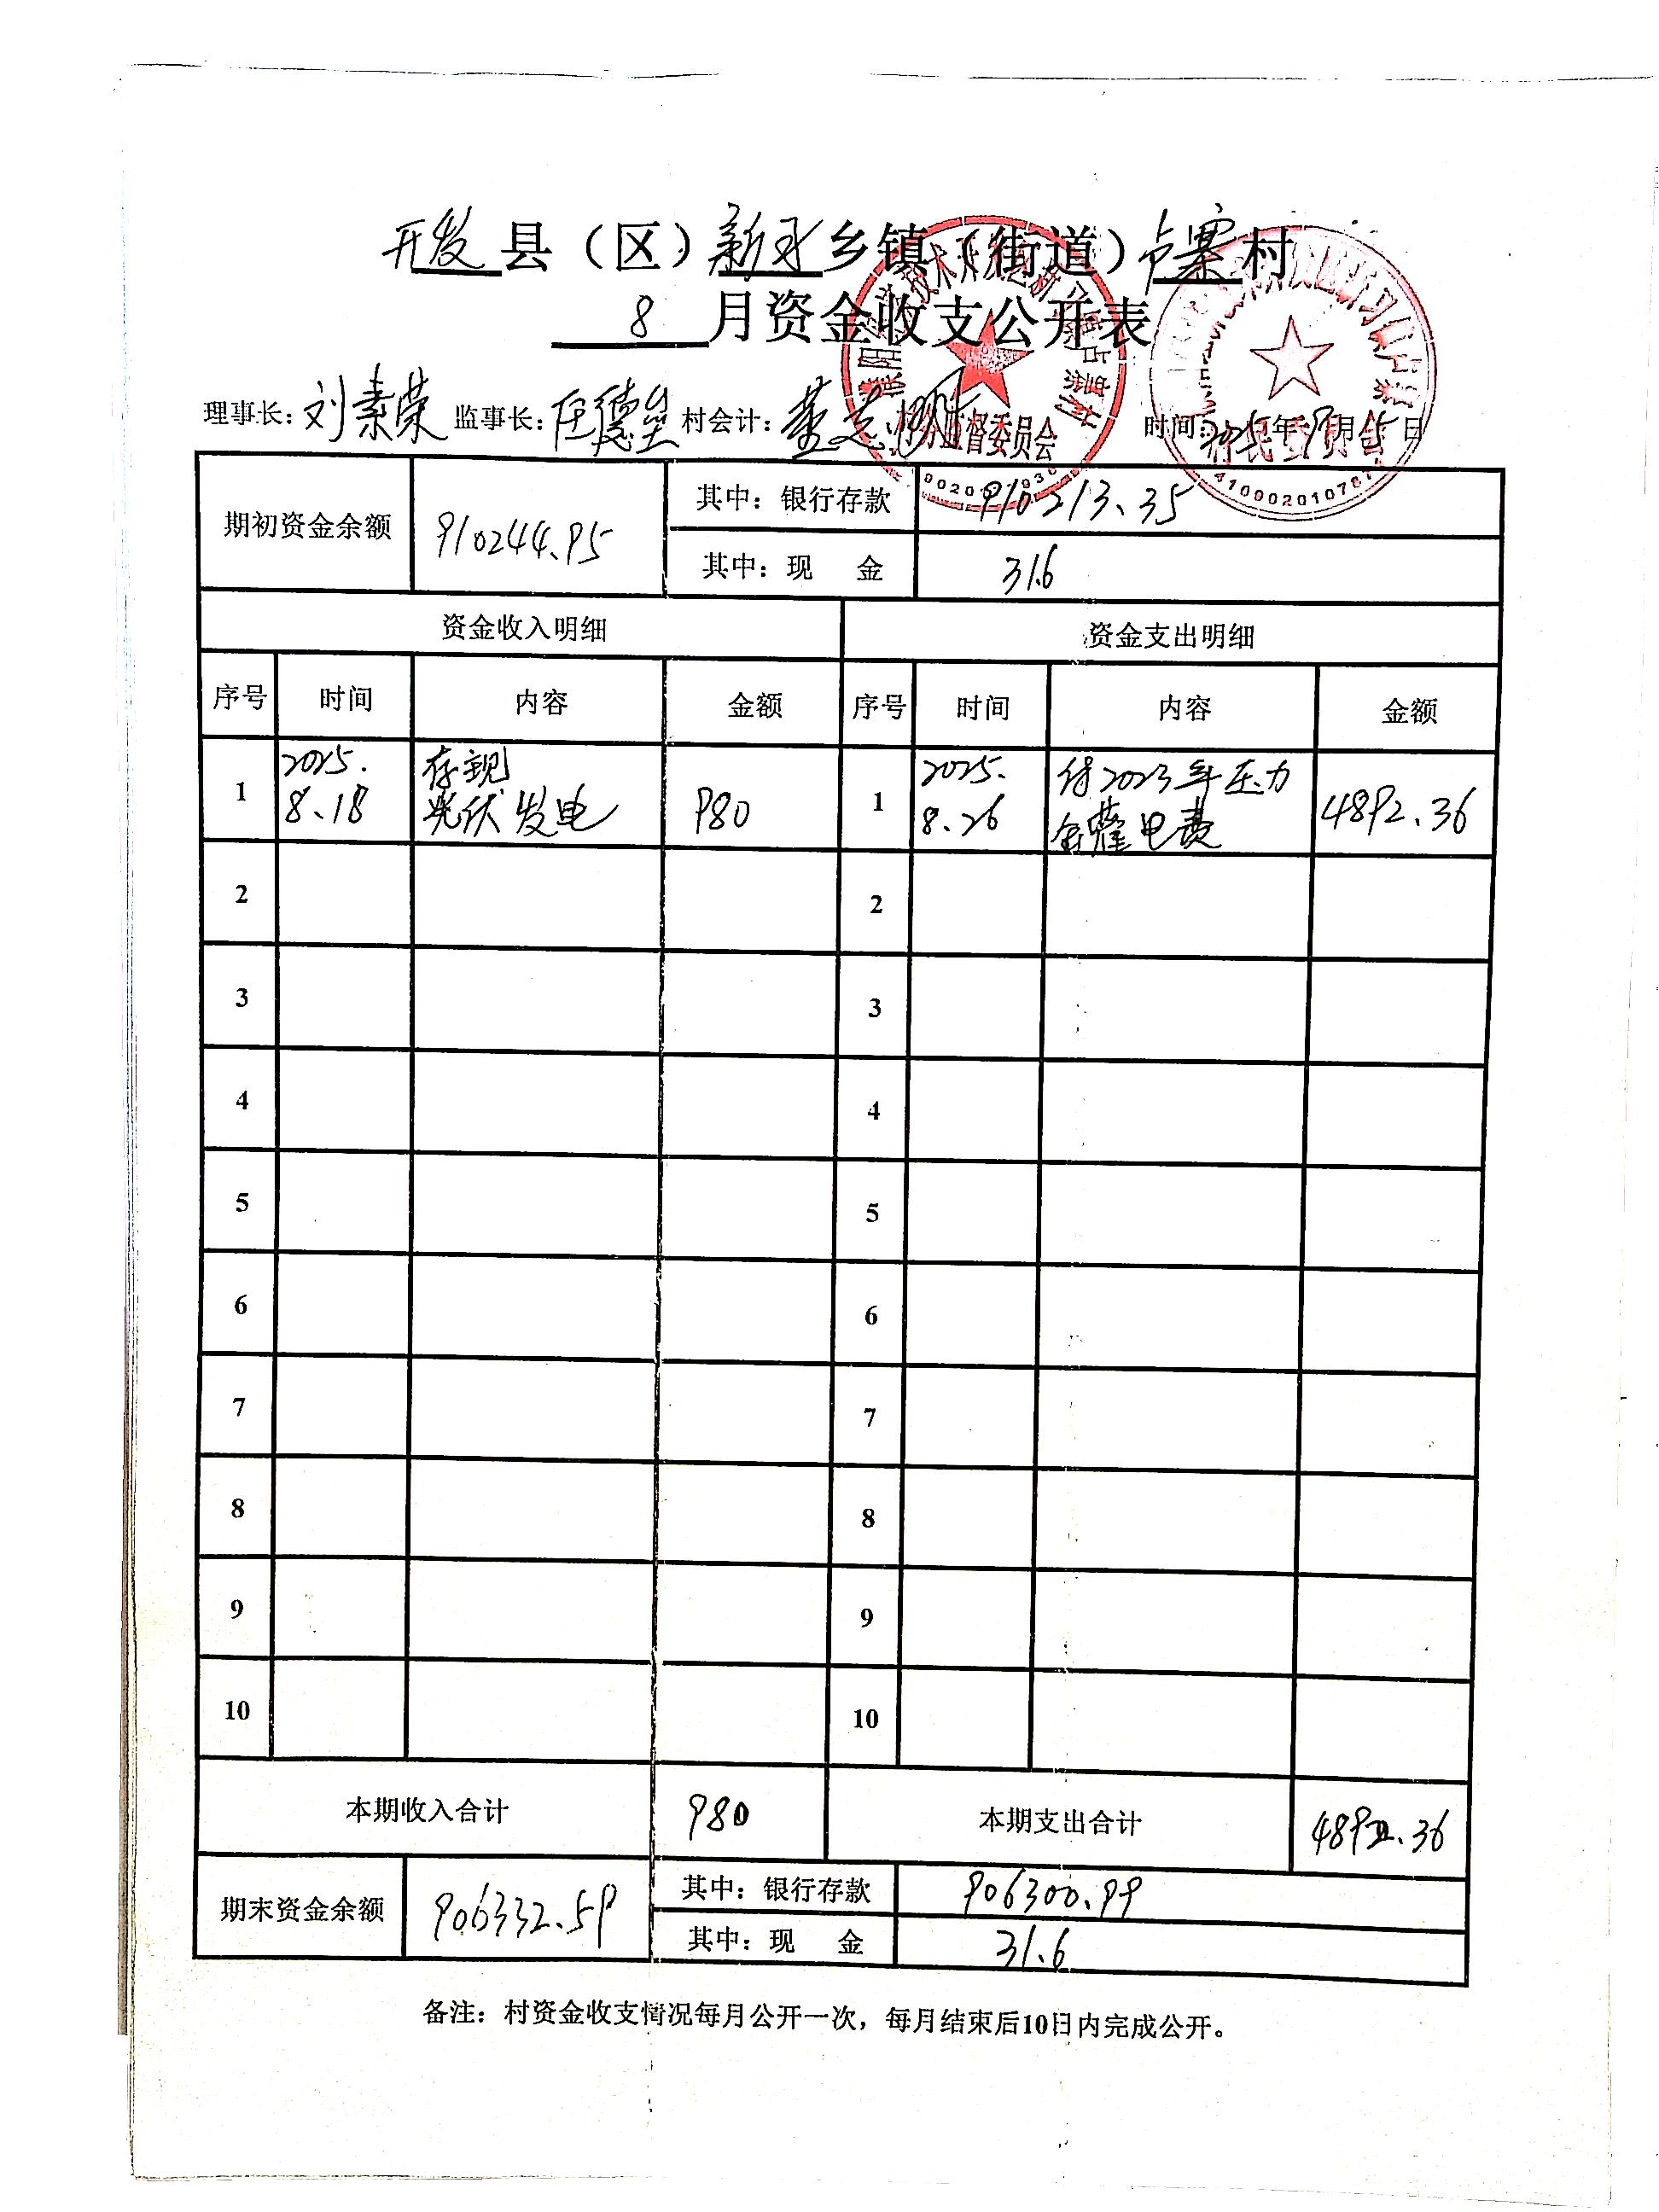 开发县（区）新习乡镇（街道）占寨村
8月资金收支公开表
理事长：刘素荣 监事长：任德垒 村会计：董志 时间：2025年9月5日
期初资金余额 910244.95 其中：银行存款 910213.35
其中：现 金 31.6
资金收入明细 资金支出明细
序号 时间 内容 金额 序号 时间 内容 金额
1 2025.8.18 存现光伏发电 980 1 2025.8.26 付2023年压力罐电费 4892.36
2 2
3 3
4 4
5 5
6 6
7 7
8 8
9 9
10 10
本期收入合计 980 本期支出合计 4892.36
期末资金余额 906332.59 其中：银行存款 906300.99
其中：现 金 31.6
备注：村资金收支情况每月公开一次，每月结束后10日内完成公开。
村务监督委员会
村民委员会